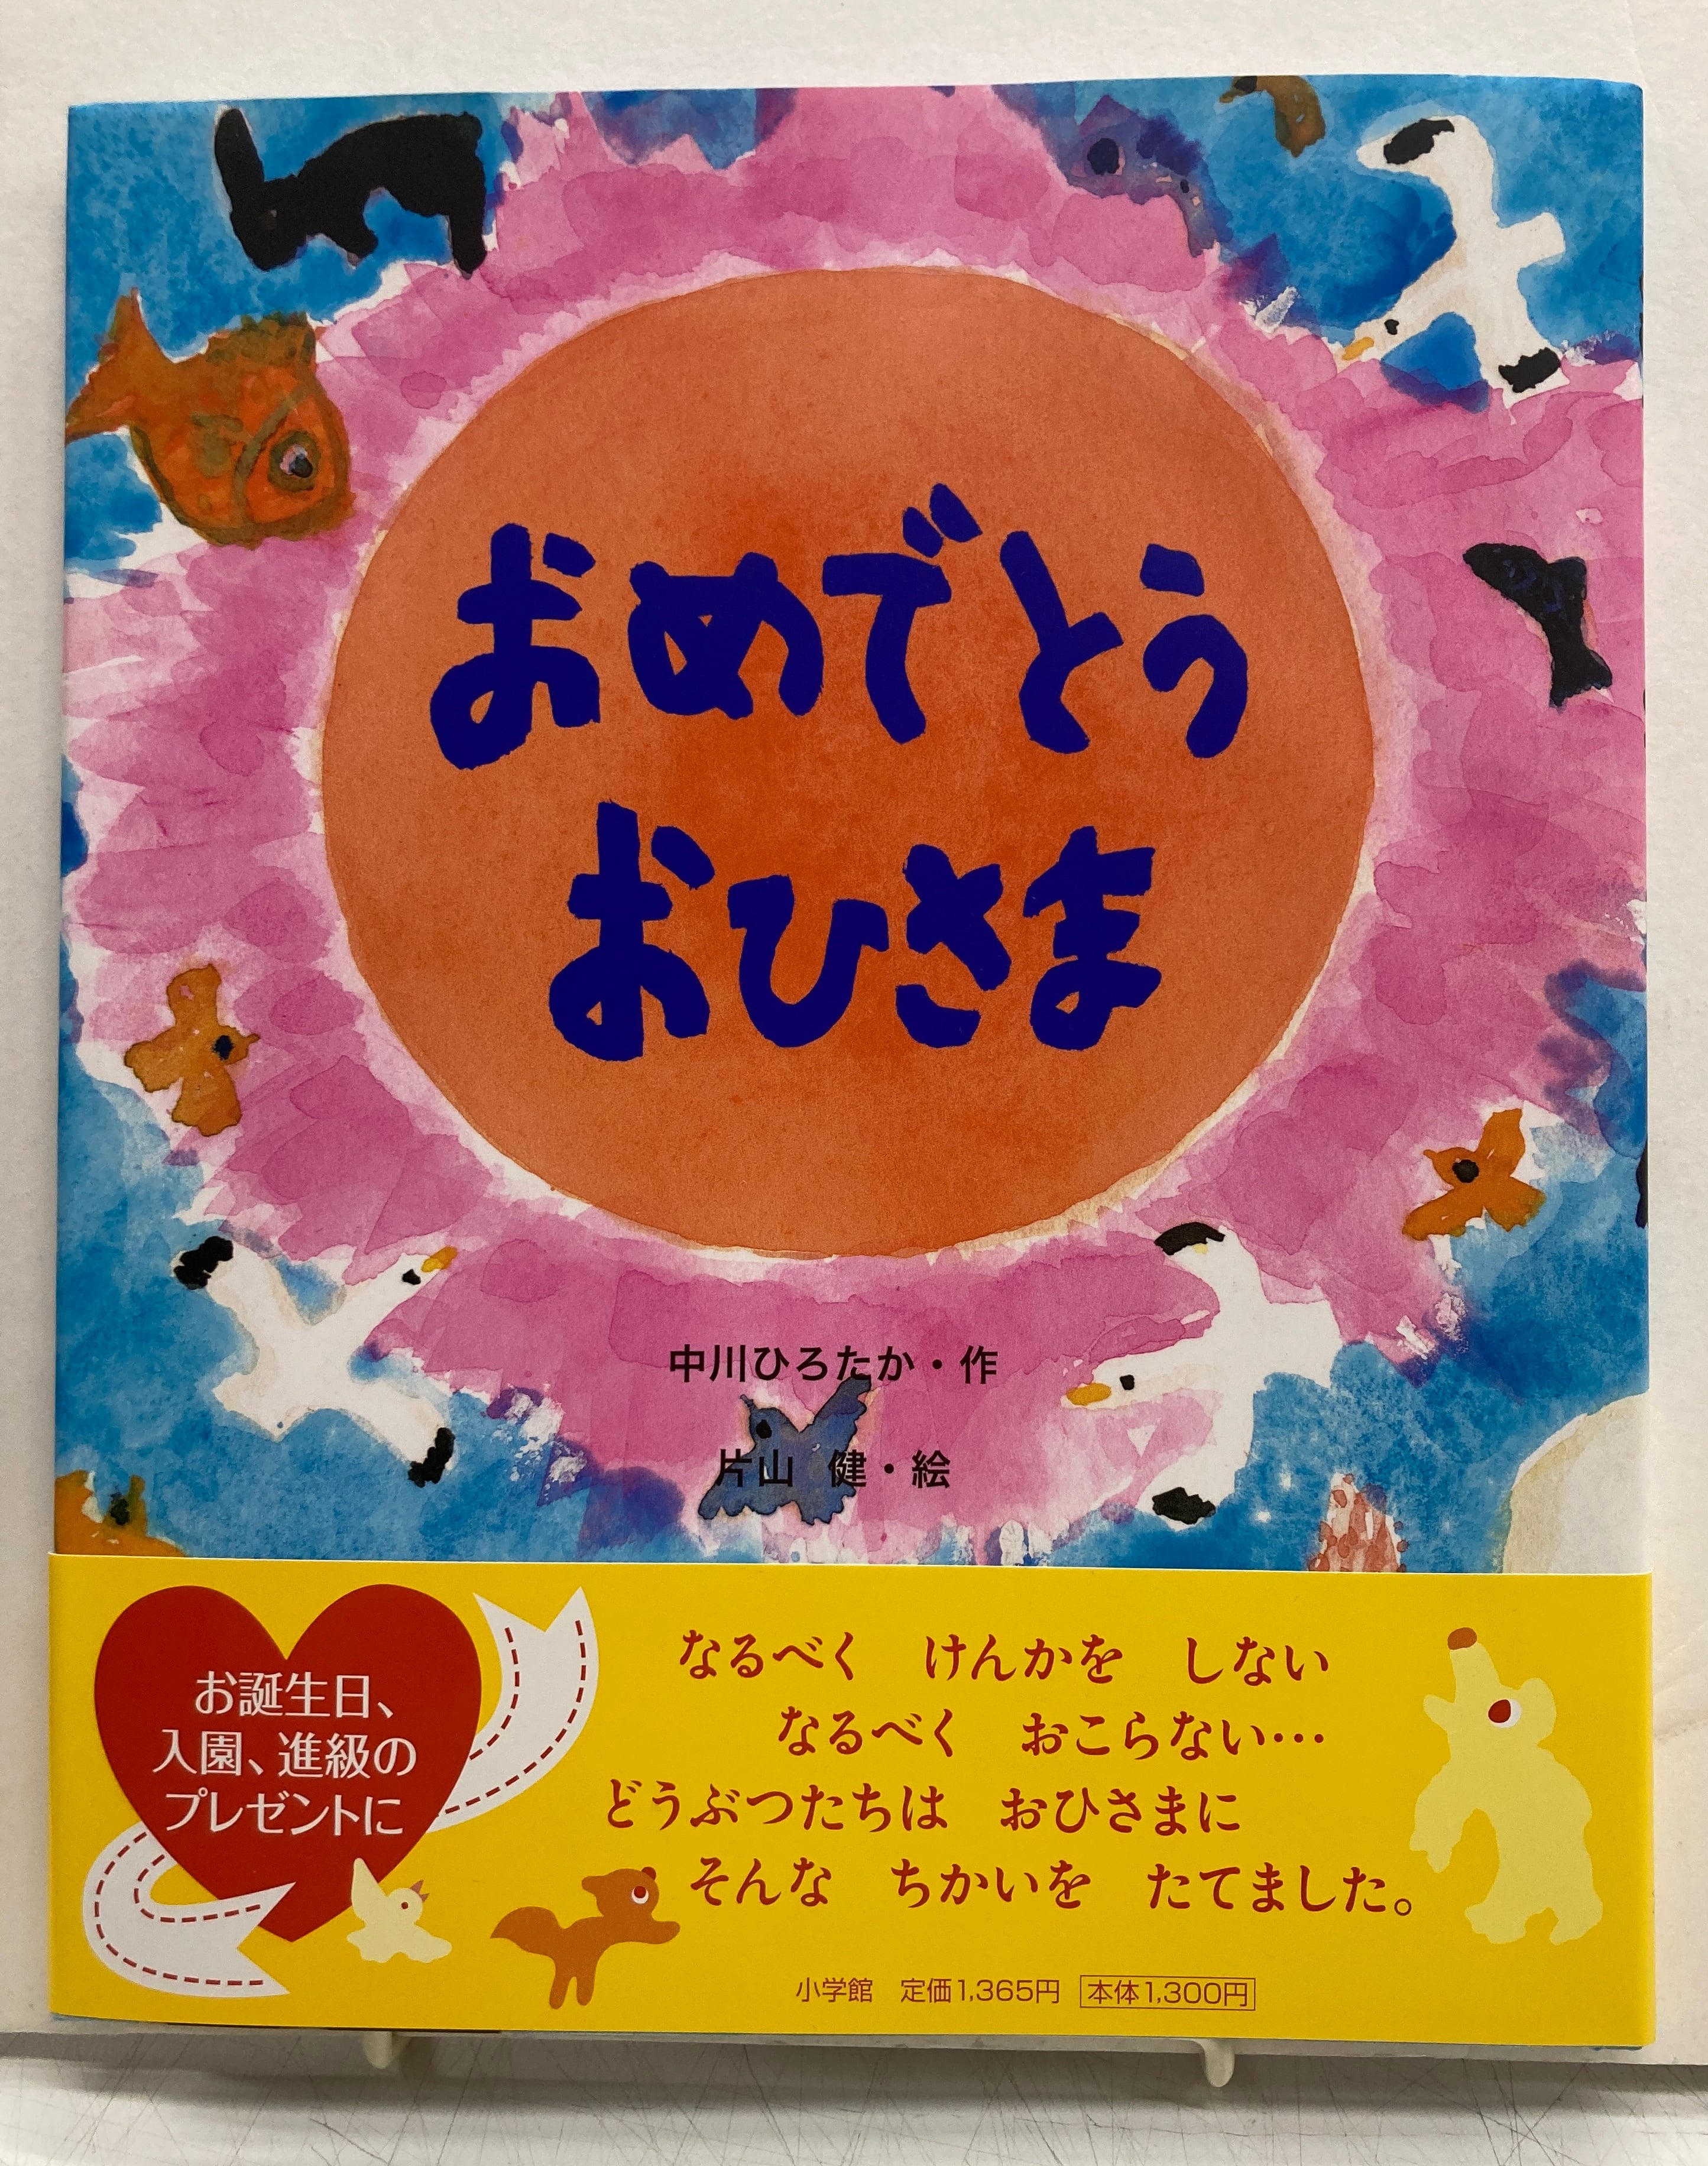 おめでとう
おひさま
中川ひろたか・作
片山 健・絵
お誕生日、
入園、進級の
プレゼントに
なるべく けんかを しない
なるべく おこらない…
どうぶつたちは おひさまに
そんな ちかいを たてました。
小学館 定価1,365円 本体1,300円